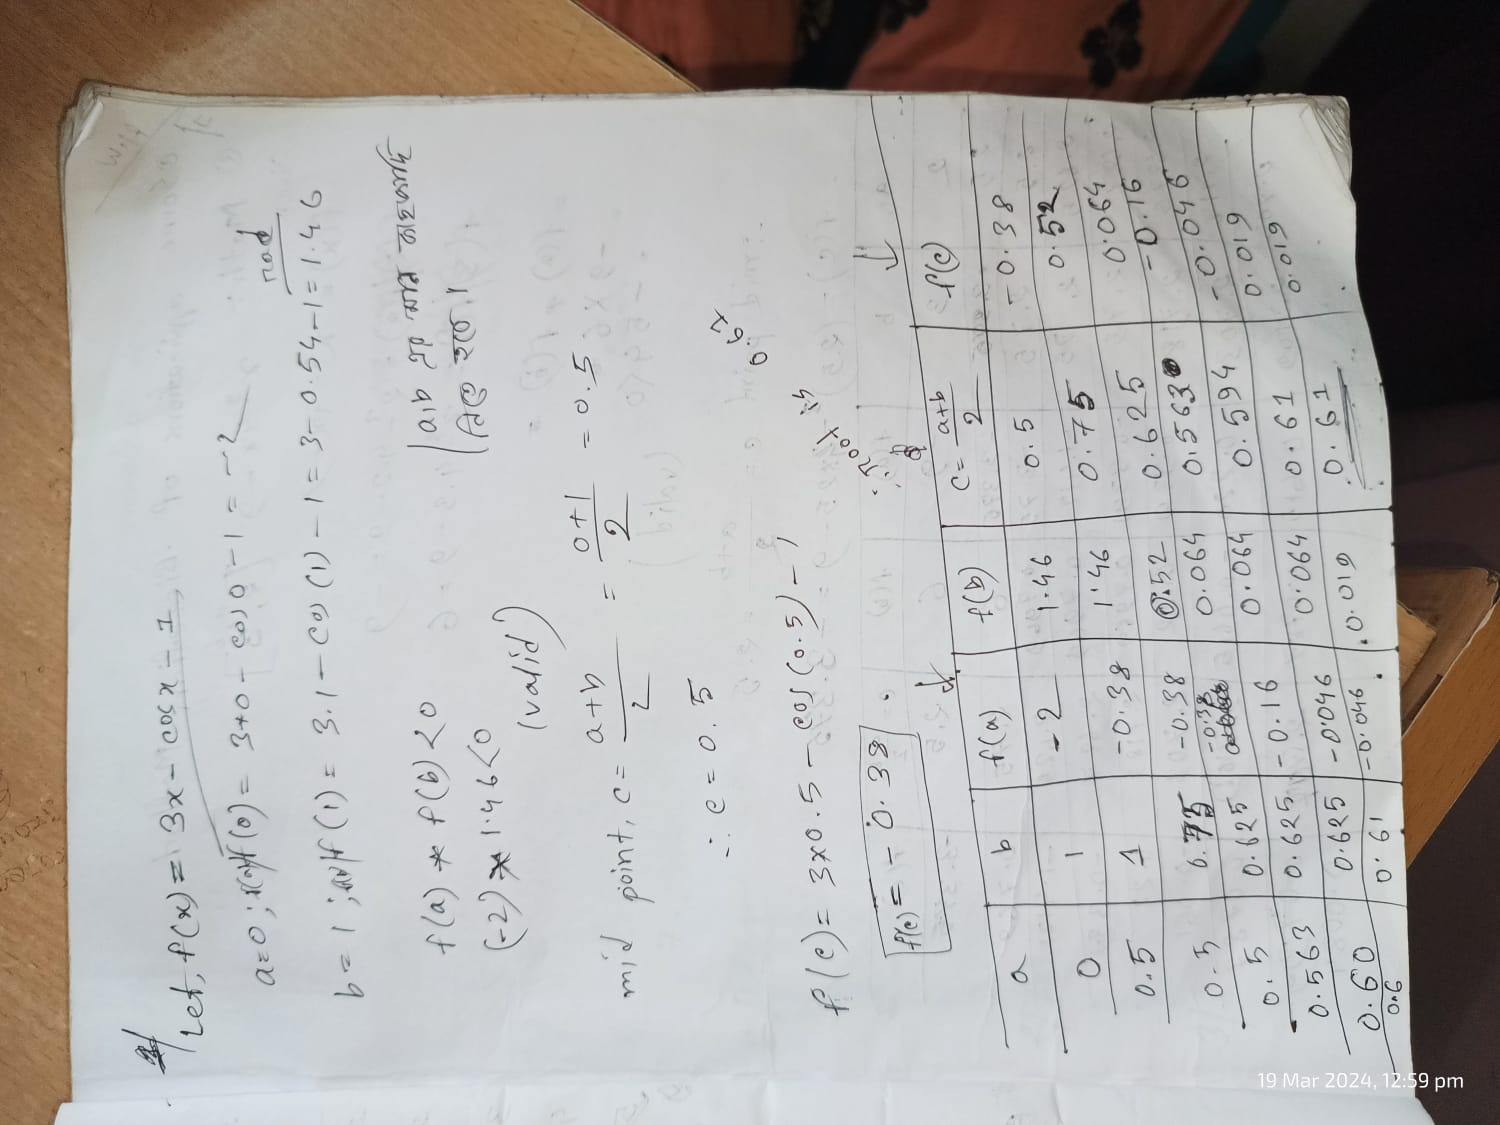 Let, f(x) = 3x - cosx - 1
a=0; f(0) = 3*0 - cos0 - 1 = -2
rad
b = 1; f(1) = 3.1 - cos(1) - 1 = 3-0.54-1=1.46
f(a) * f(b) <0
(-2) * 1.46<0
(valid)
(a,b এর মান
নিতে হবে।
mid point, c= a+b/2 = 0+1/2 = 0.5
∴ c = 0.5
0.67
f(c) = 3x0.5 - cos(0.5) - 1
f(c) = - 0.38
∴ root is
a b f(a) f(b) c= a+b/2 f(c)
0 1 -2 1.46 0.5 -0.38
0.5 1 -0.38 1.46 0.75 0.52
0.5 0.75 -0.38 0.52 0.625 0.064
0.5 0.625 -0.38 0.064 0.563 -0.16
0.563 0.625 -0.16 0.064 0.594 -0.046
0.60 0.625 -0.046 0.064 0.61 0.019
0.6 0.61 -0.046 0.019 0.61 0.019
19 Mar 2024, 12:59 pm